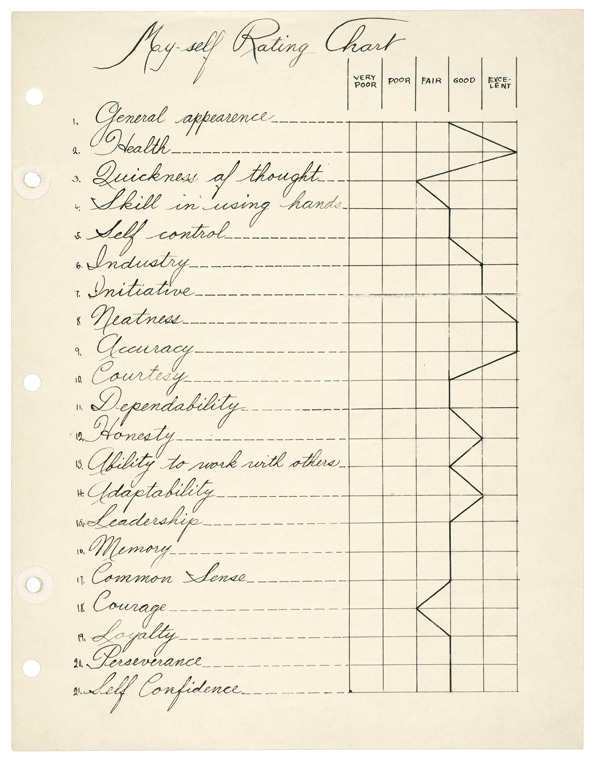 May-self Rating Chart
VERY POOR POOR FAIR GOOD EXCE-LENT
1. General appearence
2. Health
3. Quickness of thought
4. Skill in using hands
5. Self control
6. Industry
7. Initiative
8. Neatness
9. Accuracy
10. Courtesy
11. Dependability
12. Honesty
13. Ability to work with others
14. Adaptability
15. Leadership
16. Memory
17. Common Sense
18. Courage
19. Loyalty
20. Perseverance
21. Self Confidence